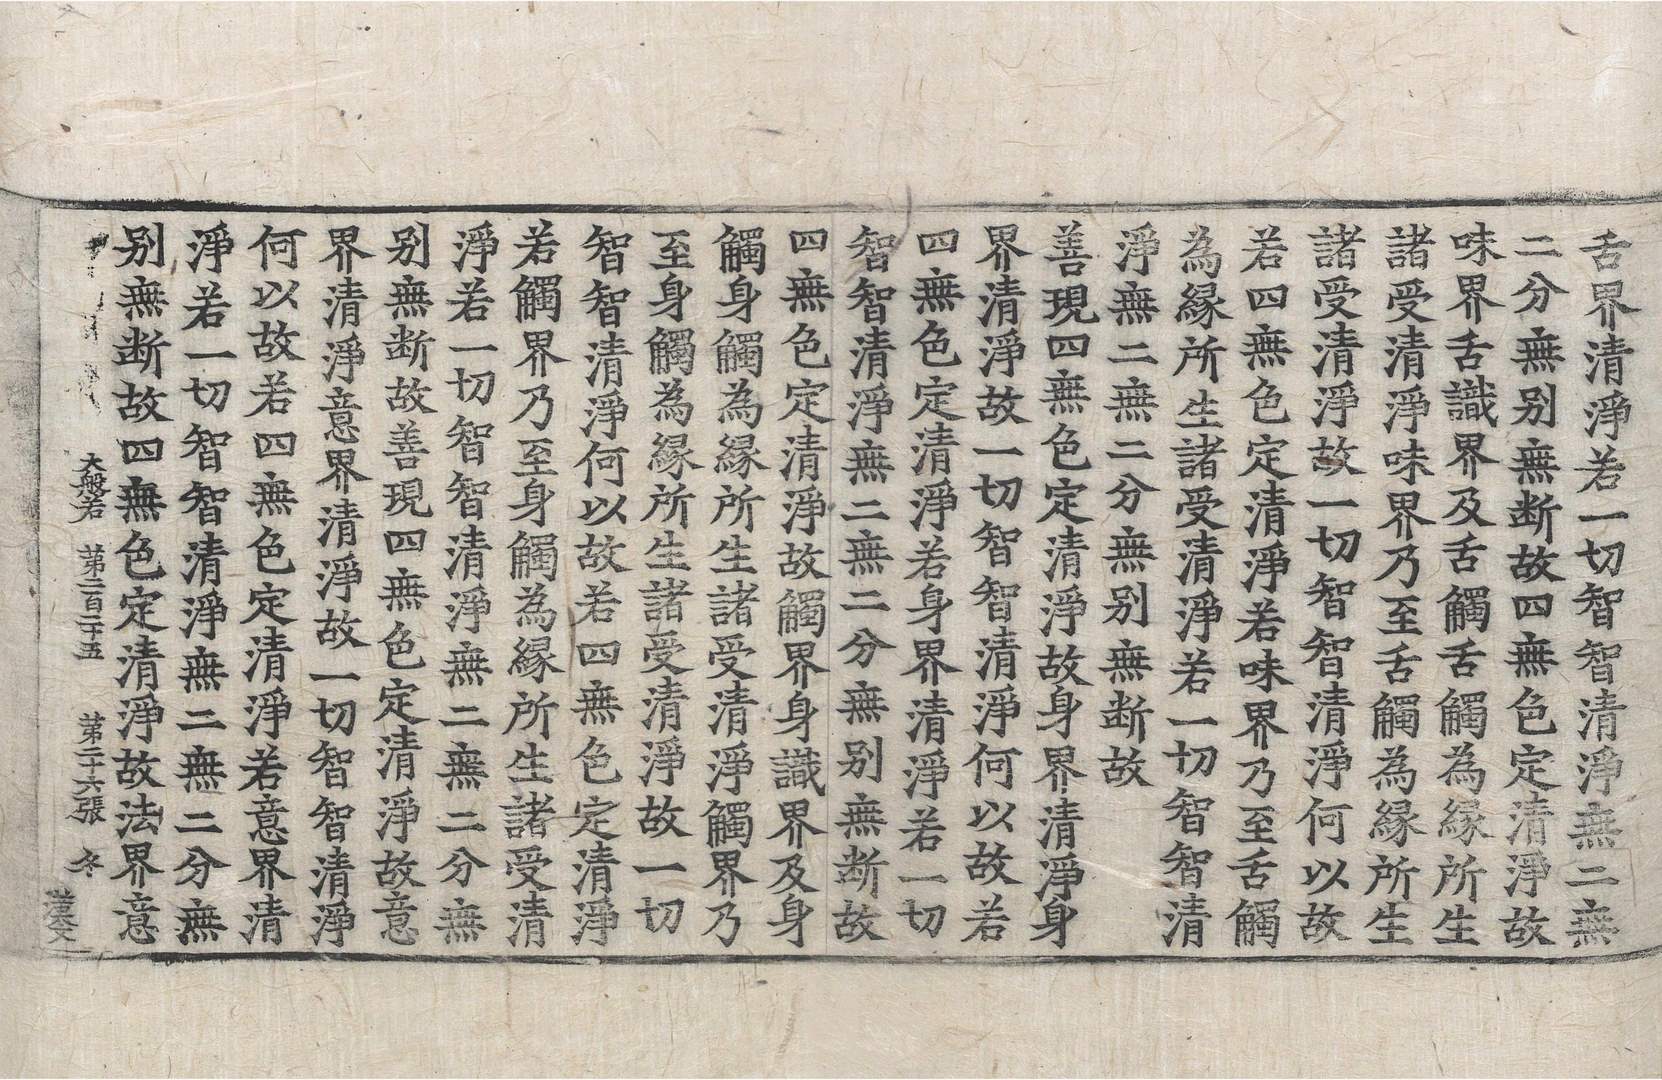 舌界清淨若一切智智清淨無二無
二分無别無断故四無色定清淨故
味界舌識界及舌觸舌觸為縁所生
諸受清淨味界乃至舌觸為縁所生
諸受清淨故一切智智清淨何以故
若四無色定清淨若味界乃至舌觸
為縁所生諸受清淨若一切智智清
淨無二無二分無别無断故
善現四無色定清淨故身界清淨身
界清淨故一切智智清淨何以故若
四無色定清淨若身界清淨若一切
智智清淨無二無二分無别無断故
四無色定清淨故觸界身識界及身
觸身觸為縁所生諸受清淨觸界乃
至身觸為縁所生諸受清淨故一切
智智清淨何以故若四無色定清淨
若觸界乃至身觸為縁所生諸受清
淨若一切智智清淨無二無二分無
别無断故善現四無色定清淨故意
界清淨意界清淨故一切智智清淨
何以故若四無色定清淨若意界清
淨若一切智智清淨無二無二分無
别無断故四無色定清淨故法界意
大般若 第二百二十五 第二十六張 冬